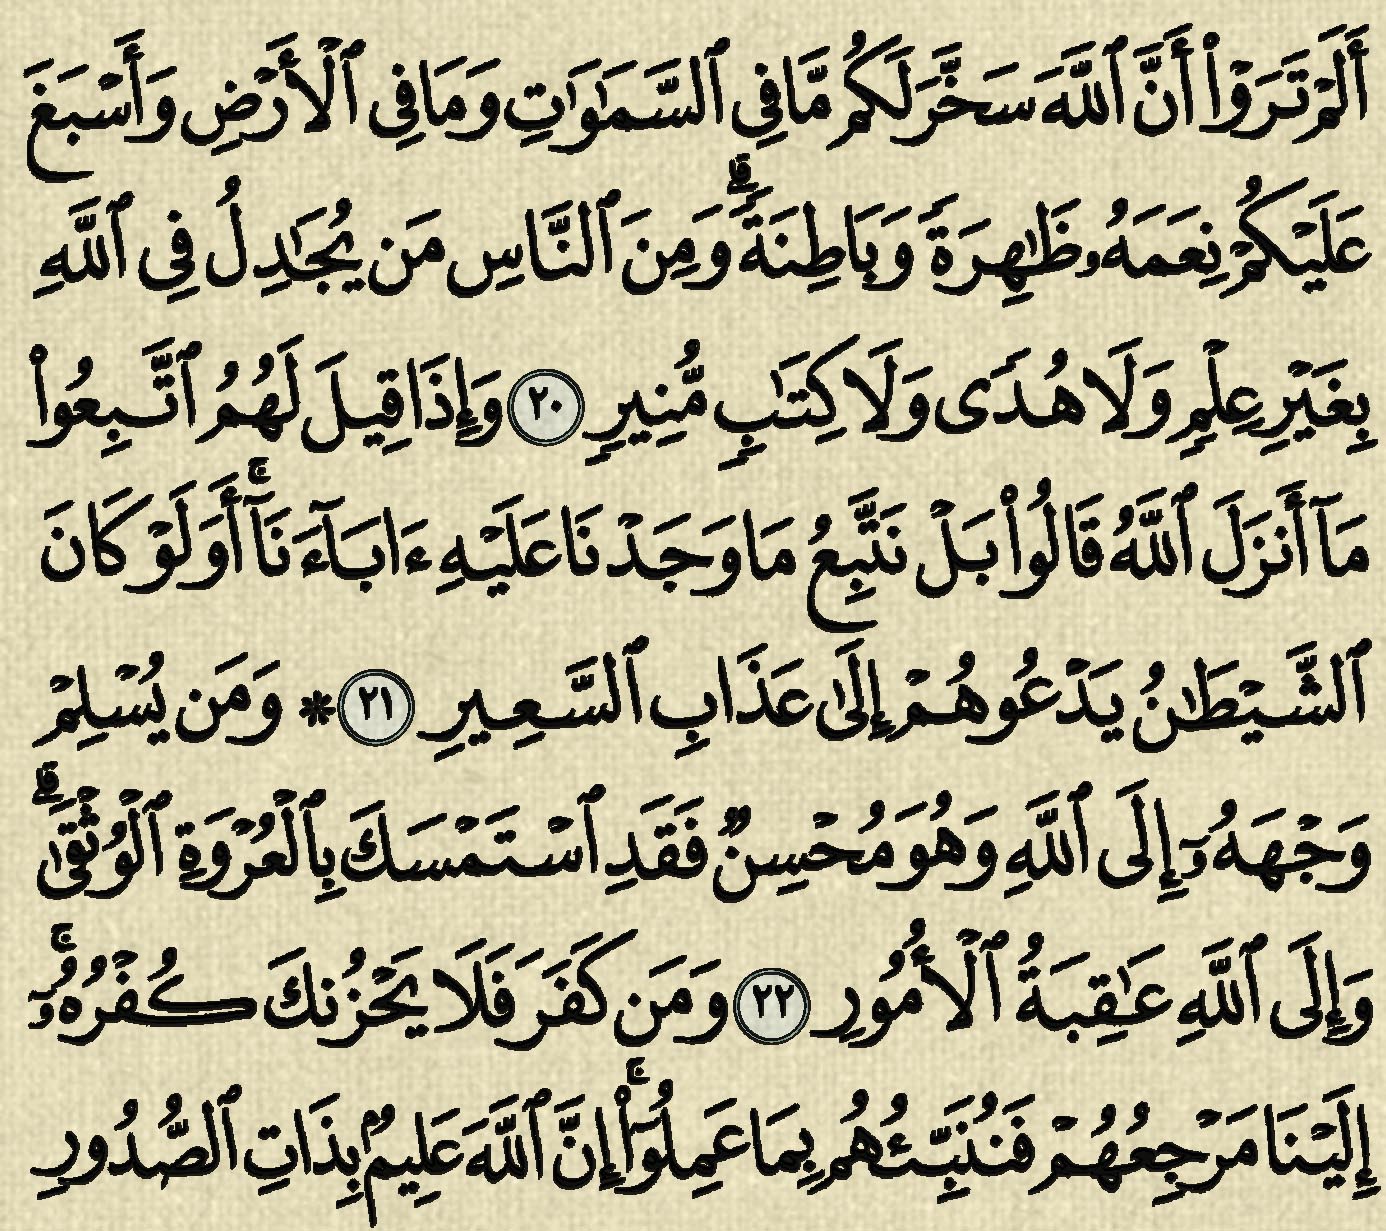 أَلَمْ تَرَوْا۟ أَنَّ ٱللَّهَ سَخَّرَ لَكُم مَّا فِى ٱلسَّمَٰوَٰتِ وَمَا فِى ٱلْأَرْضِ وَأَسْبَغَ
عَلَيْكُمْ نِعَمَهُۥ ظَٰهِرَةً وَبَاطِنَةً ۗ وَمِنَ ٱلنَّاسِ مَن يُجَٰدِلُ فِى ٱللَّهِ
بِغَيْرِ عِلْمٍ وَلَا هُدًى وَلَا كِتَٰبٍ مُّنِيرٍ ٢٠ وَإِذَا قِيلَ لَهُمُ ٱتَّبِعُوا۟
مَآ أَنزَلَ ٱللَّهُ قَالُوا۟ بَلْ نَتَّبِعُ مَا وَجَدْنَا عَلَيْهِ ءَابَآءَنَآ ۚ أَوَلَوْ كَانَ
ٱلشَّيْطَٰنُ يَدْعُوهُمْ إِلَىٰ عَذَابِ ٱلسَّعِيرِ ٢١ * وَمَن يُسْلِمْ
وَجْهَهُۥٓ إِلَى ٱللَّهِ وَهُوَ مُحْسِنٌ فَقَدِ ٱسْتَمْسَكَ بِٱلْعُرْوَةِ ٱلْوُثْقَىٰ ۗ
وَإِلَى ٱللَّهِ عَٰقِبَةُ ٱلْأُمُورِ ٢٢ وَمَن كَفَرَ فَلَا يَحْزُنكَ كُفْرُهُۥٓ ۚ
إِلَيْنَا مَرْجِعُهُمْ فَنُنَبِّئُهُم بِمَا عَمِلُوٓا۟ ۚ إِنَّ ٱللَّهَ عَلِيمٌۢ بِذَاتِ ٱلصُّدُورِ